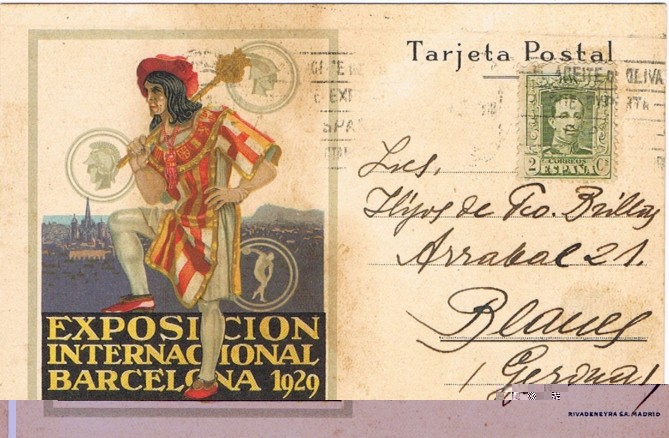 Tarjeta Postal
ACEITE DE OLIVA
2 CORREOS C
ESPAÑA
Sres.
Hijos de Fco.
Arrabal 21.
Blanes
(Gerona)
EXPOSICION
INTERNACIONAL
BARCELONA 1929
RIVADENEYRA S.A. MADRID